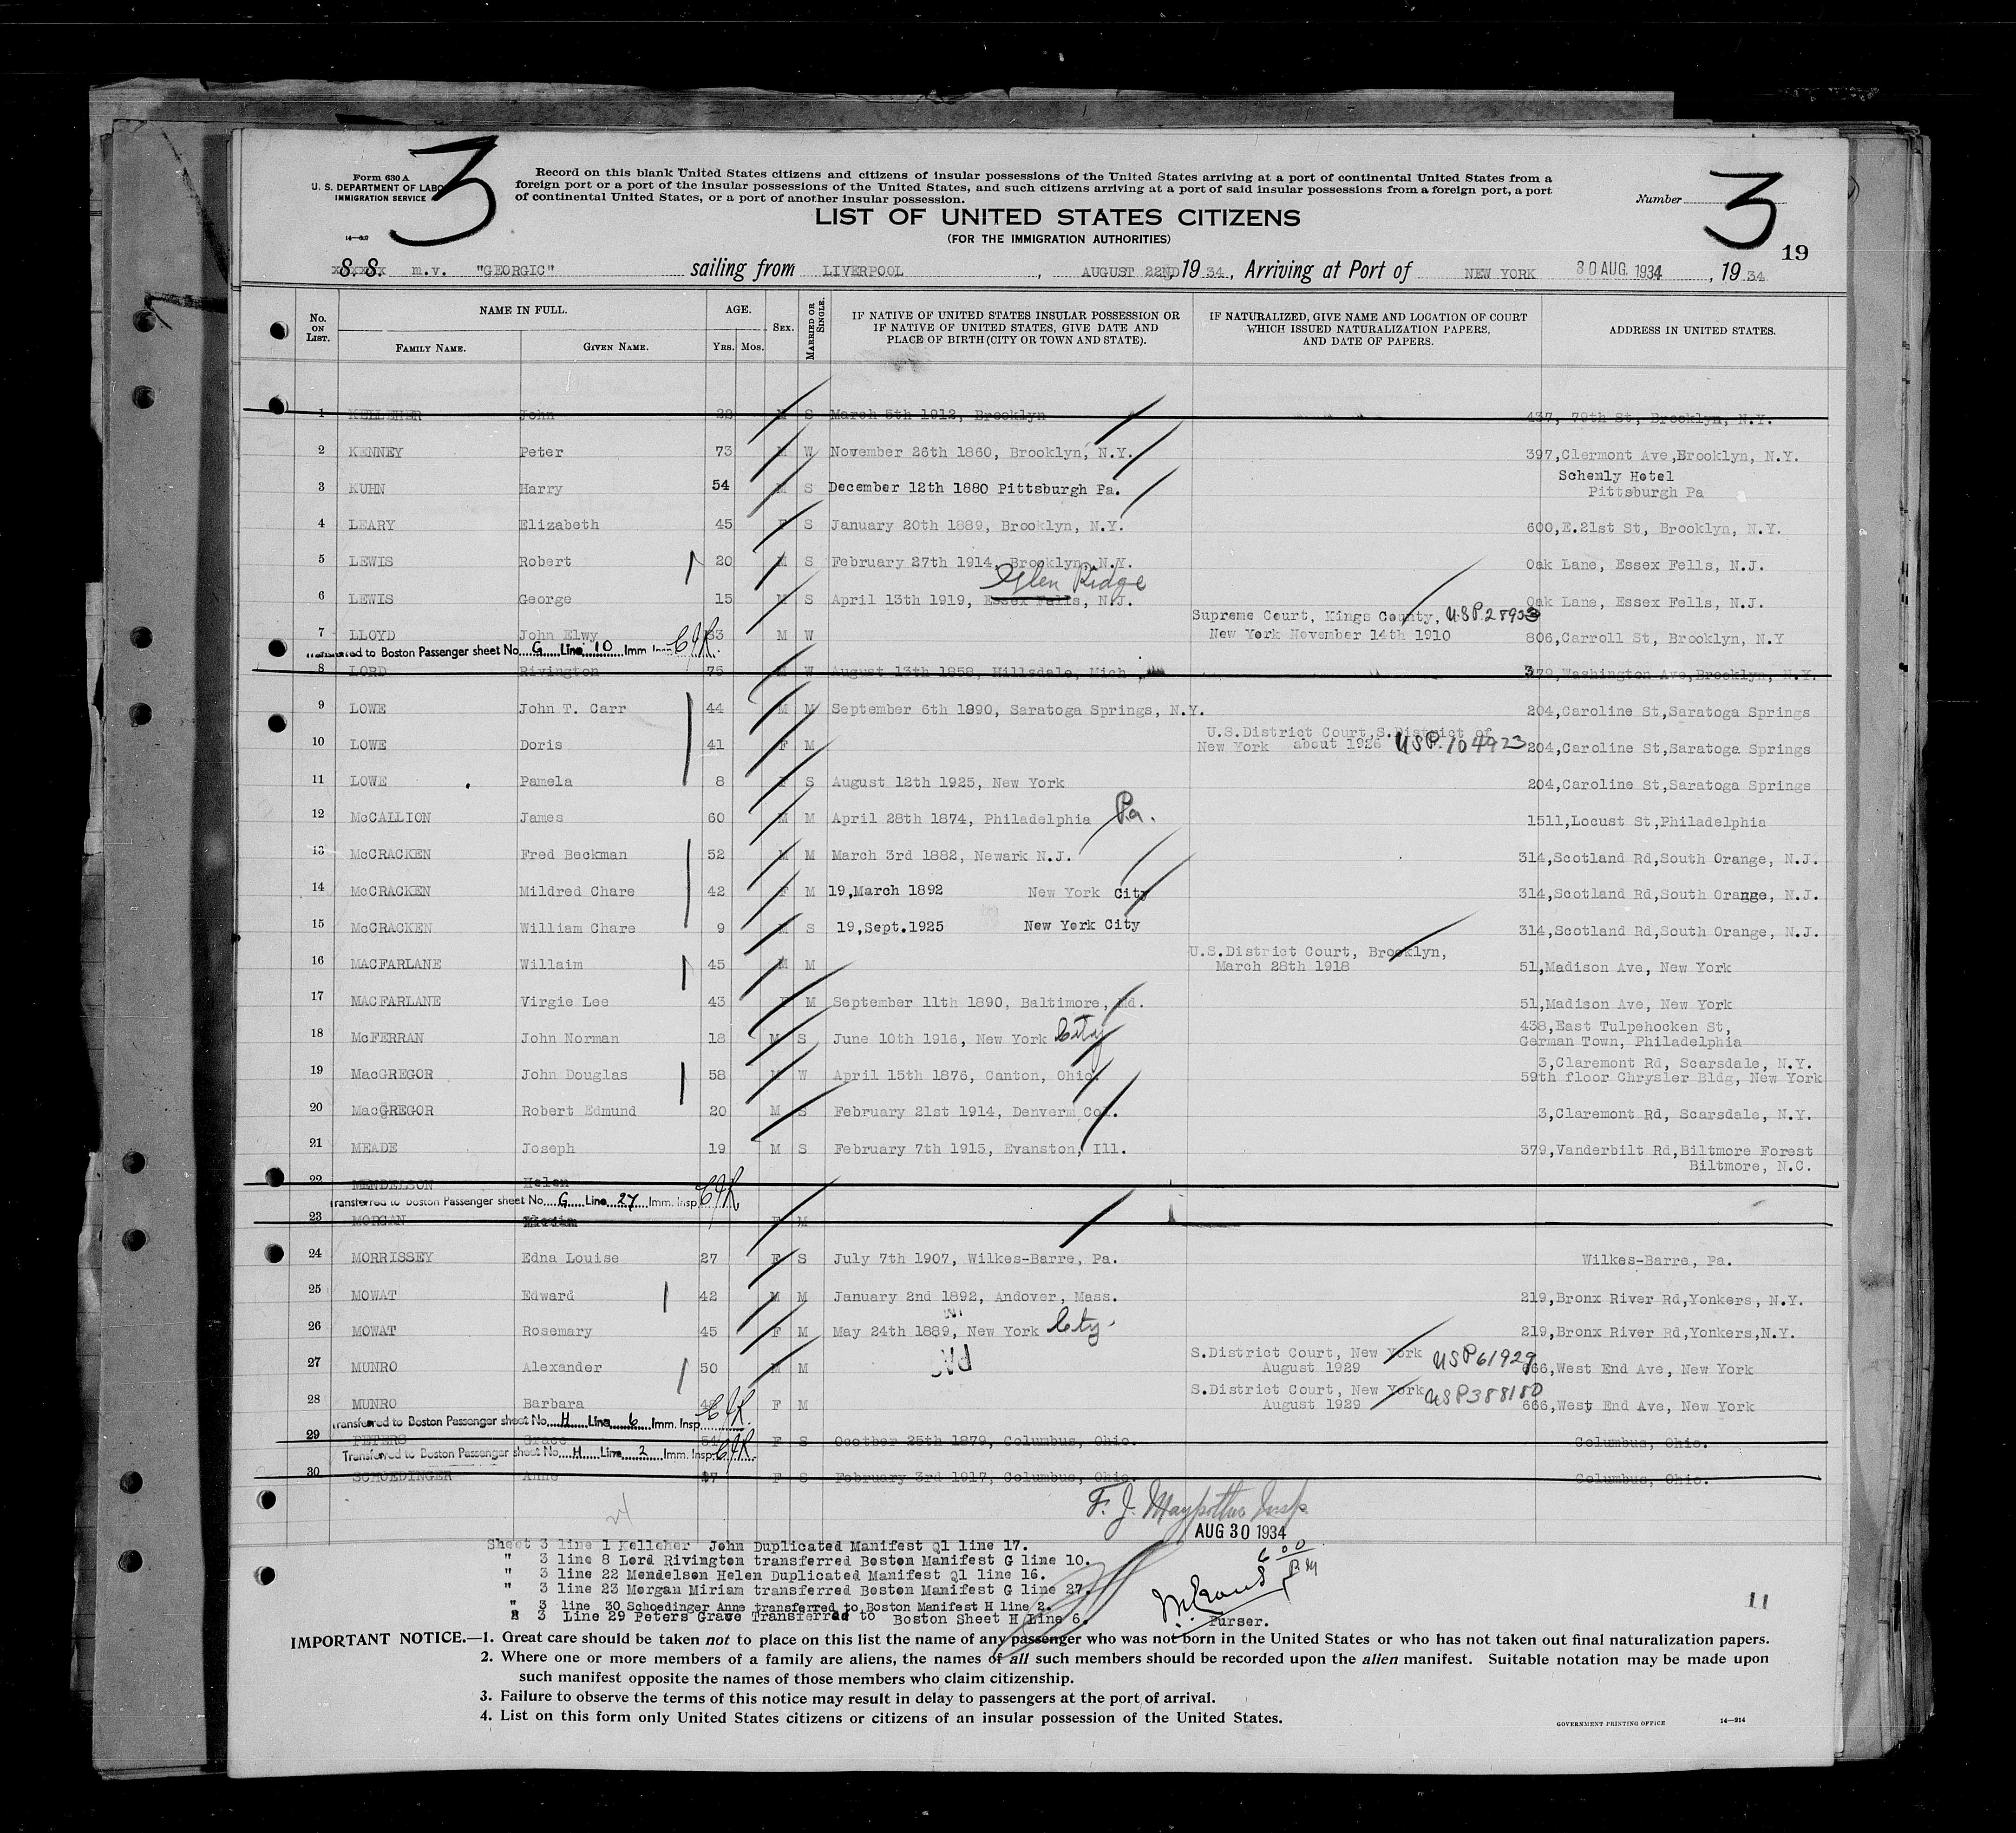 3
3
Form 630 A
U. S. DEPARTMENT OF LABO
IMMIGRATION SERVICE
Record on this blank United States citizens and citizens of insular possessions of the United States arriving at a port of continental United States from a
foreign port or a port of the insular possessions of the United States, and such citizens arriving at a port of said insular possessions from a foreign port, a port
of continental United States, or a port of another insular possession.
Number
LIST OF UNITED STATES CITIZENS
(FOR THE IMMIGRATION AUTHORITIES)
19
S. S. m.v. "GEORGIC" sailing from LIVERPOOL, AUGUST 22ND, 1934, Arriving at Port of NEW YORK 30 AUG. 1934, 1934
No. ON LIST. NAME IN FULL. FAMILY NAME. GIVEN NAME. AGE. YRS. MOS. SEX. MARRIED OR SINGLE. IF NATIVE OF UNITED STATES INSULAR POSSESSION OR IF NATIVE OF UNITED STATES, GIVE DATE AND PLACE OF BIRTH (CITY OR TOWN AND STATE). IF NATURALIZED, GIVE NAME AND LOCATION OF COURT WHICH ISSUED NATURALIZATION PAPERS, AND DATE OF PAPERS. ADDRESS IN UNITED STATES.
1 KELLEHER John 22 M S March 5th 1912, Brooklyn 437, 79th St, Brooklyn, N.Y.
2 KENNEY Peter 73 M W November 26th 1860, Brooklyn, N.Y. 397,Clermont Ave,Brooklyn, N.Y.
3 KUHN Harry 54 M S December 12th 1880 Pittsburgh Pa. Schenly Hotel
Pittsburgh Pa
4 LEARY Elizabeth 45 F S January 20th 1889, Brooklyn, N.Y. 600,E.21st St, Brooklyn, N.Y.
5 LEWIS Robert 20 M S February 27th 1914, Brooklyn, N.Y. Oak Lane, Essex Fells, N.J.
Glen Ridge
6 LEWIS George 15 M S April 13th 1919, Essex Fells, N.J. Oak Lane, Essex Fells, N.J.
Supreme Court, Kings County, USP28933
7 LLOYD John Elwy 63 M W New York November 14th 1910 806,Carroll St, Brooklyn, N.Y
to Boston Passenger sheet No. G Line 10 Imm Insp
8 LORD Rivington 75 M W August 13th 1858, Hillsdale, Mich 379,Washington Ave,Brooklyn, N.Y.
9 LOWE John T. Carr 44 M M September 6th 1890, Saratoga Springs, N.Y. 204,Caroline St,Saratoga Springs
U.S.District Court,S.District of
10 LOWE Doris 41 F M New York about 1926 USP.104923 204,Caroline St,Saratoga Springs
11 LOWE Pamela 8 F S August 12th 1925, New York 204,Caroline St,Saratoga Springs
12 McCALLION James 60 M M April 28th 1874, Philadelphia Pa. 1511,Locust St,Philadelphia
13 McCRACKEN Fred Beckman 52 M M March 3rd 1882, Newark N.J. 314,Scotland Rd,South Orange, N.J.
14 McCRACKEN Mildred Chare 42 F M 19,March 1892 New York City 314,Scotland Rd,South Orange, N.J.
15 McCRACKEN William Chare 9 M S 19,Sept.1925 New York City 314,Scotland Rd,South Orange, N.J.
U.S.District Court, Brooklyn,
16 MACFARLANE Willaim 45 M M March 28th 1918 51,Madison Ave, New York
17 MACFARLANE Virgie Lee 43 F M September 11th 1890, Baltimore, Md. 51,Madison Ave, New York
438,East Tulpehocken St,
18 McFERRAN John Norman 18 M S June 10th 1916, New York City German Town, Philadelphia
3,Claremont Rd, Scarsdale, N.Y.
19 MacGREGOR John Douglas 58 M W April 15th 1876, Canton, Ohio. 59th floor Chrysler Bldg, New York
20 MacGREGOR Robert Edmund 20 M S February 21st 1914, Denverm Col. 3,Claremont Rd, Scarsdale, N.Y.
21 MEADE Joseph 19 M S February 7th 1915, Evanston, Ill. 379,Vanderbilt Rd,Biltmore Forest
Biltmore, N.C.
22 MENDELSON Helen
Transferred to Boston Passenger sheet No. G Line 27 Imm. Insp.
23 MORGAN Miriam F M
24 MORRISSEY Edna Louise 27 F S July 7th 1907, Wilkes-Barre, Pa. Wilkes-Barre, Pa.
25 MOWAT Edward 42 M M January 2nd 1892, Andover, Mass. 219,Bronx River Rd,Yonkers, N.Y.
26 MOWAT Rosemary 45 F M May 24th 1889, New York City 219,Bronx River Rd,Yonkers,N.Y.
S.District Court, New York USP61929
27 MUNRO Alexander 50 M M August 1929 666,West End Ave, New York
S.District Court, New York USP388180
28 MUNRO Barbara F M August 1929 666,West End Ave, New York
Transferred to Boston Passenger sheet No. H Line 6 Imm. Insp.
29 PETERS Grace 54 F S Ocotber 25th 1879, Columbus, Ohio. Columbus, Ohio.
Transferred to Boston Passenger sheet No. H Line 2 Imm. Insp.
30 SCHOEDINGER Anne 17 F S February 3rd 1917, Columbus, Ohio. Columbus, Ohio.
24
F. J. Insp.
AUG 30 1934
Sheet 3 line 1 Kelleher John Duplicated Manifest Q1 line 17.
" 3 line 8 Lord Rivington transferred Boston Manifest G line 10.
" 3 line 22 Mendelson Helen Duplicated Manifest Q1 line 16.
" 3 line 23 Morgan Miriam transferred Boston Manifest G line 27.
" 3 line 30 Schoedinger Anne transferred to Boston Manifest H line 2.
" 3 Line 29 Peters Grace Transferred to Boston Sheet H Line 6.
600
PM
Purser.
11
IMPORTANT NOTICE.—1. Great care should be taken not to place on this list the name of any passenger who was not born in the United States or who has not taken out final naturalization papers.
2. Where one or more members of a family are aliens, the names of all such members should be recorded upon the alien manifest. Suitable notation may be made upon
such manifest opposite the names of those members who claim citizenship.
3. Failure to observe the terms of this notice may result in delay to passengers at the port of arrival.
4. List on this form only United States citizens or citizens of an insular possession of the United States.
GOVERNMENT PRINTING OFFICE 14—914